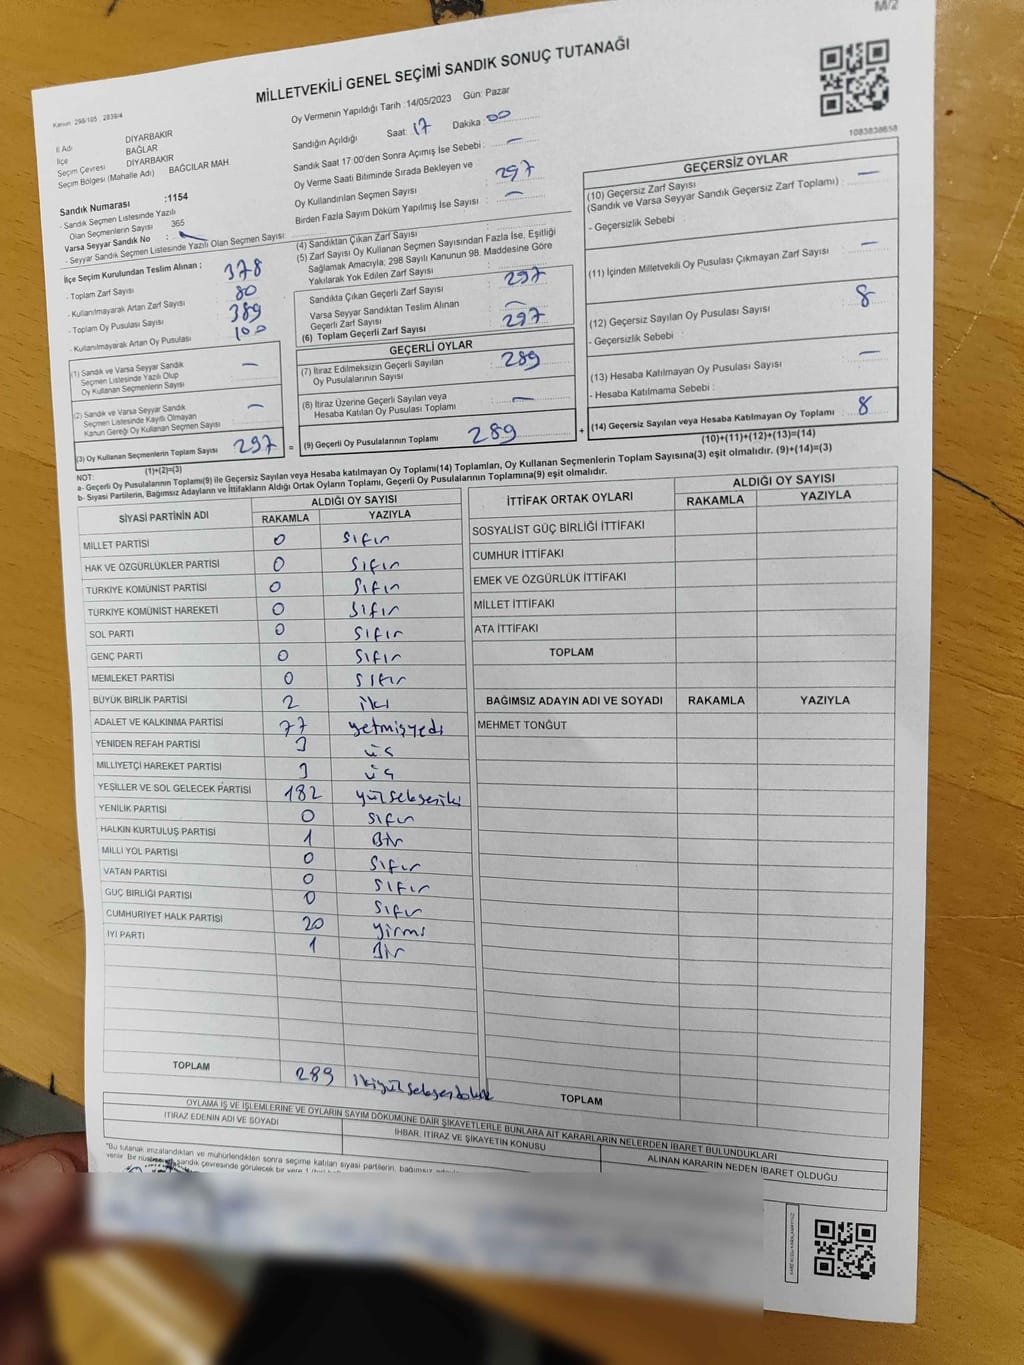 M/2
MİLLETVEKİLİ GENEL SEÇİMİ SANDIK SONUÇ TUTANAĞI
Kanun: 298/105 , 2839/4
Oy Vermenin Yapıldığı Tarih : 14/05/2023 Gün: Pazar
1083838658
İl Adı DİYARBAKIR
İlçe BAĞLAR
Seçim Çevresi DİYARBAKIR
Seçim Bölgesi (Mahalle Adı) BAĞCILAR MAH
Sandık Numarası :1154
- Sandık Seçmen Listesinde Yazılı
Olan Seçmenlerin Sayısı 365
Varsa Seyyar Sandık No :
- Seyyar Sandık Seçmen Listesinde Yazılı Olan Seçmen Sayısı:
Sandığın Açıldığı Saat: 17 Dakika: 00
Sandık Saat 17:00'den Sonra Açımış İse Sebebi : —
Oy Verme Saati Bitiminde Sırada Bekleyen ve
Oy Kullandırılan Seçmen Sayısı 297
Birden Fazla Sayım Döküm Yapılmış İse Sayısı —
İlçe Seçim Kurulundan Teslim Alınan ;
- Toplam Zarf Sayısı 378
- Kullanılmayarak Artan Zarf Sayısı 80
- Toplam Oy Pusulası Sayısı 389
- Kullanılmayarak Artan Oy Pusulası 100
(1) Sandık ve Varsa Seyyar Sandık
Seçmen Listesinde Yazılı Olup
Oy Kullanan Seçmenlerin Sayısı —
(2) Sandık ve Varsa Seyyar Sandık
Seçmen Listesinde Kayıtlı Olmayan
Kanun Gereği Oy Kullanan Seçmen Sayısı —
(3) Oy Kullanan Seçmenlerin Toplam Sayısı 297
(1)+(2)=(3)
(4) Sandıktan Çıkan Zarf Sayısı
(5) Zarf Sayısı Oy Kullanan Seçmen Sayısından Fazla İse, Eşitliği
Sağlamak Amacıyla; 298 Sayılı Kanunun 98. Maddesine Göre
Yakılarak Yok Edilen Zarf Sayısı
Sandıkta Çıkan Geçerli Zarf Sayısı 297
Varsa Seyyar Sandıktan Teslim Alınan
Geçerli Zarf Sayısı —
(6) Toplam Geçerli Zarf Sayısı 297
GEÇERLİ OYLAR
(7) İtiraz Edilmeksizin Geçerli Sayılan
Oy Pusulalarının Sayısı 289
(8) İtiraz Üzerine Geçerli Sayılan veya
Hesaba Katılan Oy Pusulası Toplamı —
= (9) Geçerli Oy Pusulalarının Toplamı 289 +
GEÇERSİZ OYLAR
(10) Geçersiz Zarf Sayısı
(Sandık ve Varsa Seyyar Sandık Geçersiz Zarf Toplamı) : —
- Geçersizlik Sebebi :
(11) İçinden Milletvekili Oy Pusulası Çıkmayan Zarf Sayısı —
(12) Geçersiz Sayılan Oy Pusulası Sayısı 8
- Geçersizlik Sebebi :
(13) Hesaba Katılmayan Oy Pusulası Sayısı —
- Hesaba Katılmama Sebebi :
(14) Geçersiz Sayılan veya Hesaba Katılmayan Oy Toplamı : 8
(10)+(11)+(12)+(13)=(14)
NOT:
a- Geçerli Oy Pusulalarının Toplamı(9) ile Geçersiz Sayılan veya Hesaba katılmayan Oy Toplamı(14) Toplamları, Oy Kullanan Seçmenlerin Toplam Sayısına(3) eşit olmalıdır. (9)+(14)=(3)
b- Siyasi Partilerin, Bağımsız Adayların ve İttifakların Aldığı Ortak Oyların Toplamı, Geçerli Oy Pusulalarının Toplamına(9) eşit olmalıdır.
SİYASİ PARTİNİN ADI ALDIĞI OY SAYISI
RAKAMLA YAZIYLA
MİLLET PARTİSİ 0 sıfır
HAK VE ÖZGÜRLÜKLER PARTİSİ 0 sıfır
TÜRKİYE KOMÜNİST PARTİSİ 0 sıfır
TÜRKİYE KOMÜNİST HAREKETİ 0 sıfır
SOL PARTİ 0 sıfır
GENÇ PARTİ 0 sıfır
MEMLEKET PARTİSİ 0 sıfır
BÜYÜK BİRLİK PARTİSİ 2 iki
ADALET VE KALKINMA PARTİSİ 77 yetmişyedi
YENİDEN REFAH PARTİSİ 3 üç
MİLLİYETÇİ HAREKET PARTİSİ 3 üç
YEŞİLLER VE SOL GELECEK PARTİSİ 182 yüzsekseniki
YENİLİK PARTİSİ 0 sıfır
HALKIN KURTULUŞ PARTİSİ 1 Bir
MİLLİ YOL PARTİSİ 0 sıfır
VATAN PARTİSİ 0 sıfır
GÜÇ BİRLİĞİ PARTİSİ 0 sıfır
CUMHURİYET HALK PARTİSİ 20 yirmi
İYİ PARTİ 1 Bir
TOPLAM 289 ikiyüzseksendokuz
İTTİFAK ORTAK OYLARI ALDIĞI OY SAYISI
RAKAMLA YAZIYLA
SOSYALİST GÜÇ BİRLİĞİ İTTİFAKI
CUMHUR İTTİFAKI
EMEK VE ÖZGÜRLÜK İTTİFAKI
MİLLET İTTİFAKI
ATA İTTİFAKI
TOPLAM
BAĞIMSIZ ADAYIN ADI VE SOYADI RAKAMLA YAZIYLA
MEHMET TONĞUT
TOPLAM
OYLAMA İŞ VE İŞLEMLERİNE VE OYLARIN SAYIM DÖKÜMÜNE DAİR ŞİKAYETLERLE BUNLARA AİT KARARLARIN NELERDEN İBARET BULUNDUKLARI
İTİRAZ EDENİN ADI VE SOYADI
İHBAR, İTİRAZ VE ŞİKAYETİN KONUSU
ALINAN KARARIN NEDEN İBARET OLDUĞU
"Bu tutanak imzalandıktan ve mühürlendikten sonra seçime katılan siyasi partilerin, bağımsız